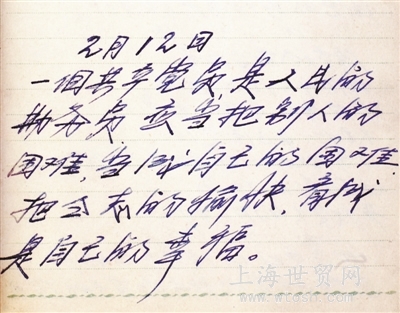 2月12日
一個共产党员是人民的
勤务员,应当把别人的
困难,当成自己的困难.
把同志的愉快,看成
是自己的幸福。
上海世贸网